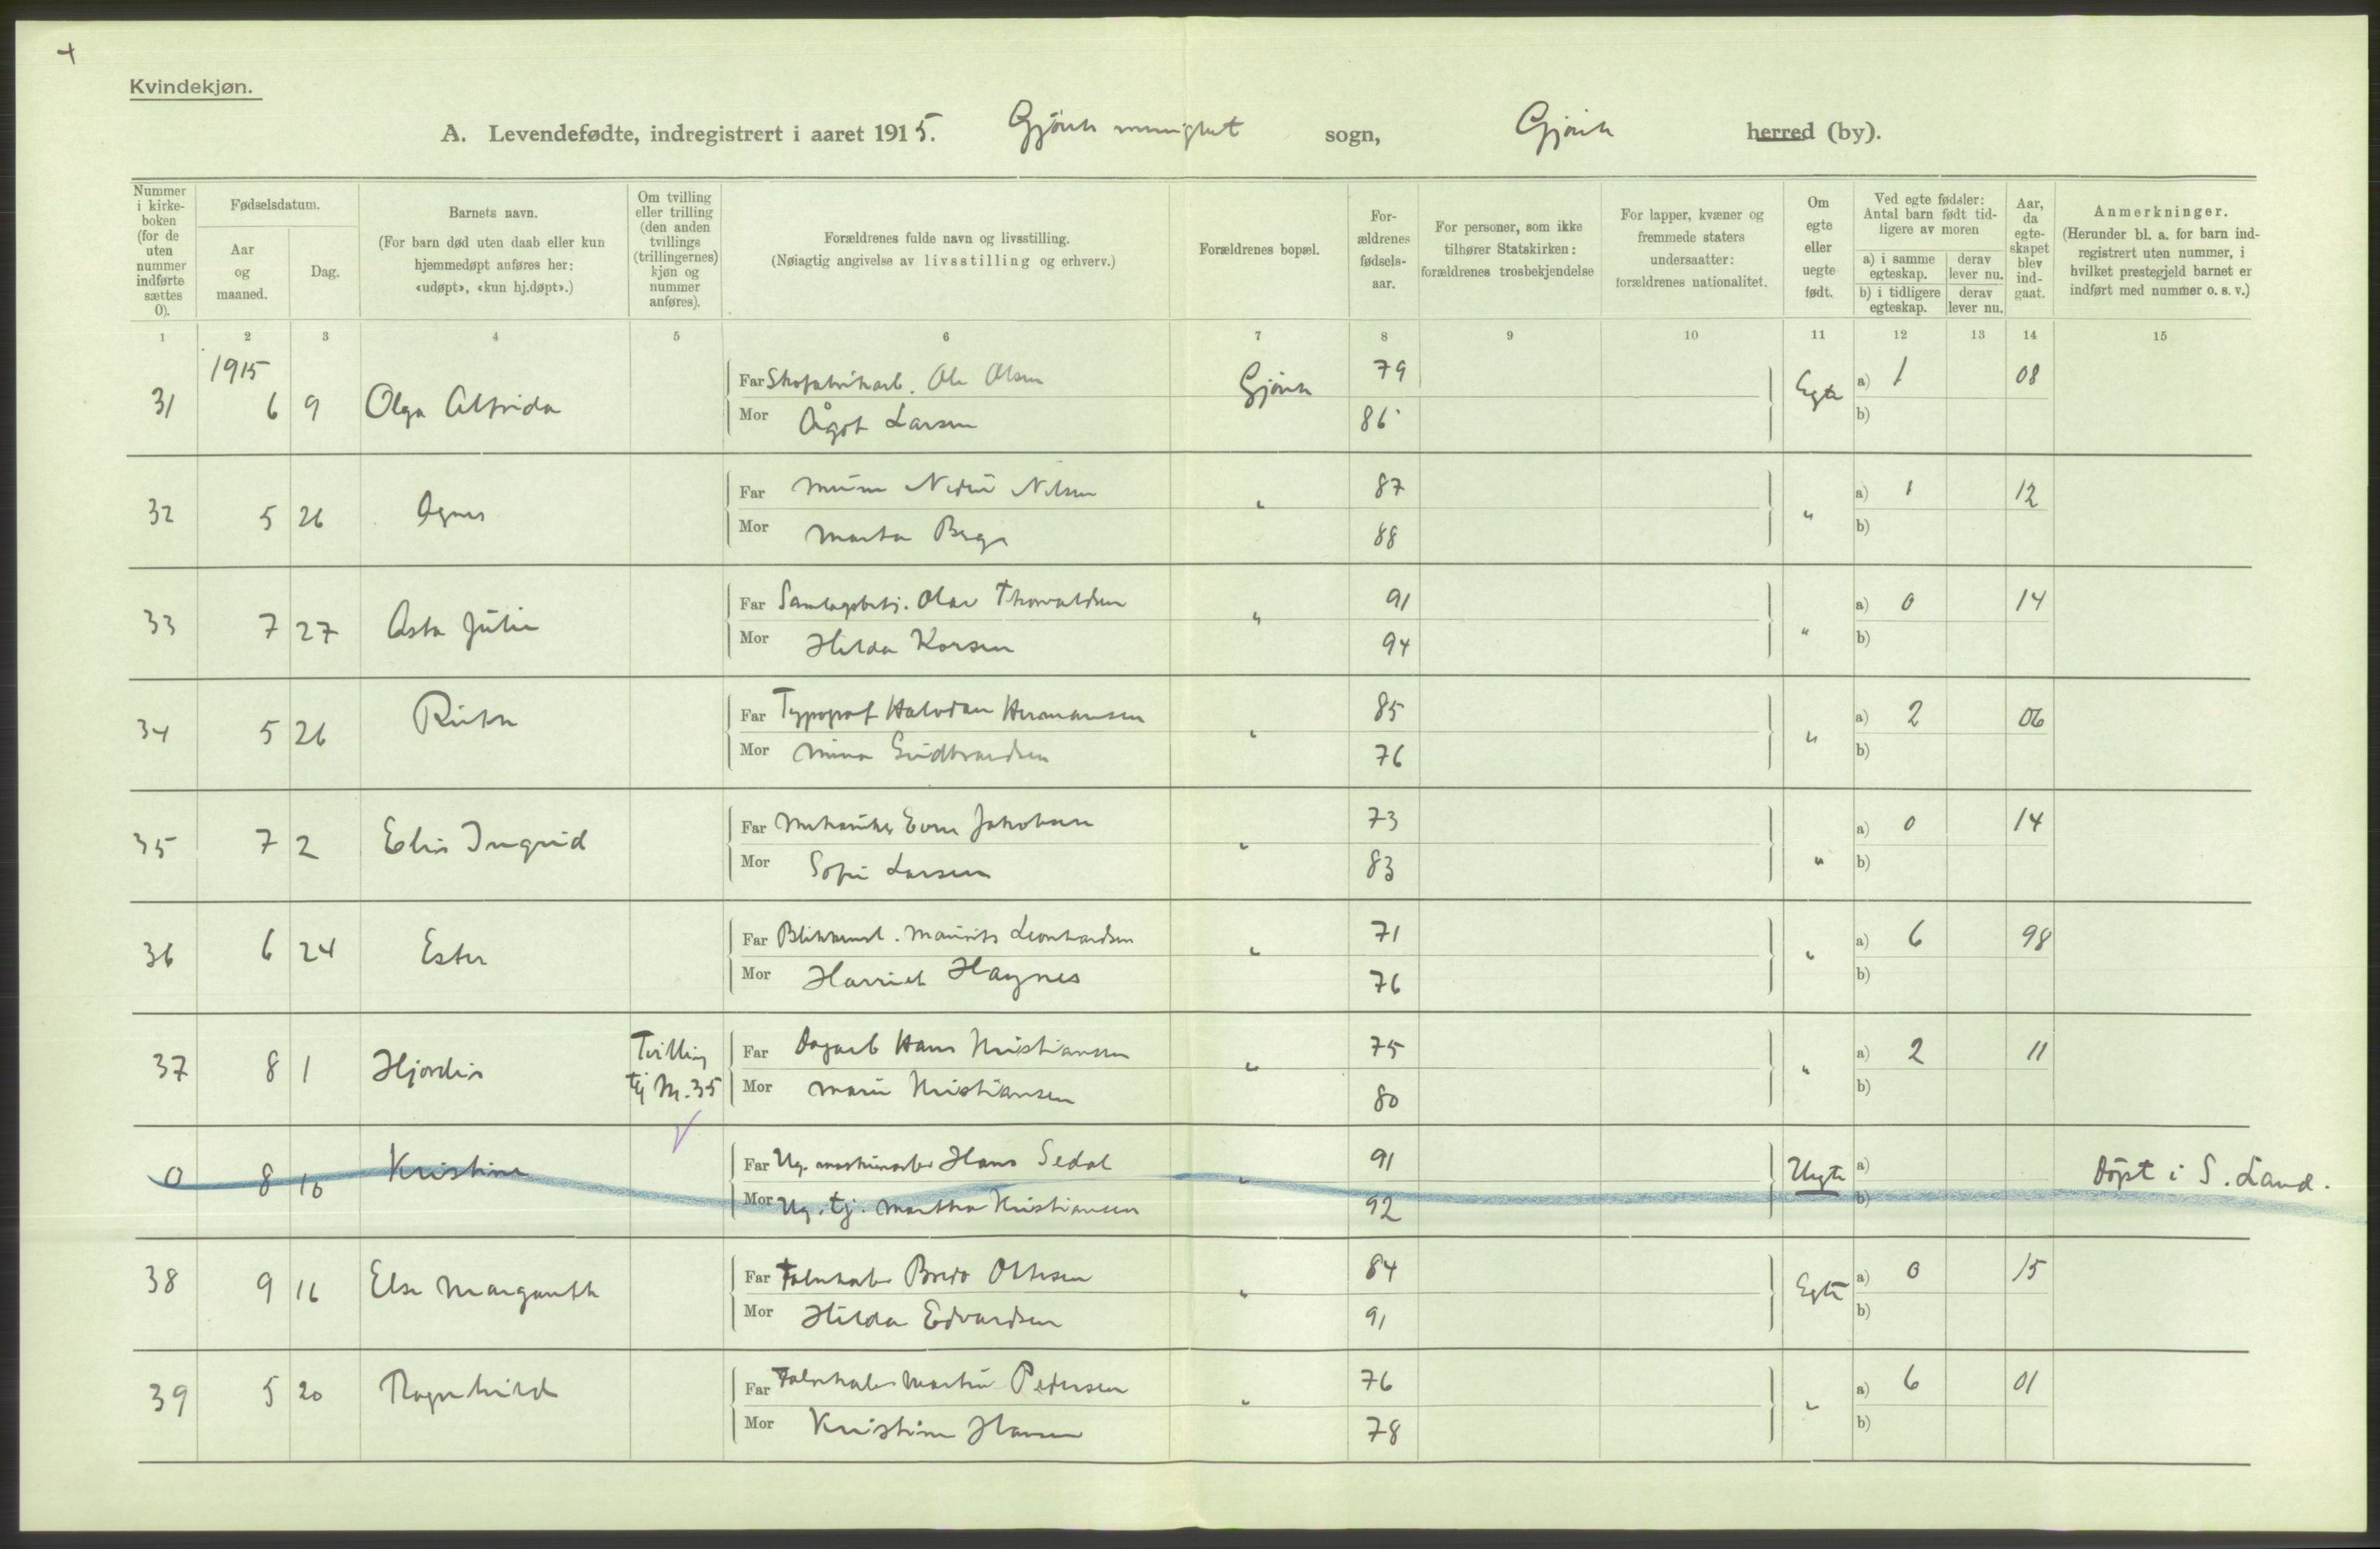 +
Kvindekjøn.
A. Levendefødte, indregistrert i aaret 1915. Gjøvik menighet sogn, Gjøvik herred (by).
Nummer i kirkeboken (for de uten nummer indførte sættes 0).
Fødselsdatum.
Aar og maaned.
Dag.
Barnets navn.
(For barn død uten daab eller kun hjemmedøpt anføres her: «udøpt», «kun hj.døpt».)
Om tvilling eller trilling (den anden tvillings (trillingernes) kjøn og nummer anføres).
Forældrenes fulde navn og livsstilling.
(Nøiagtig angivelse av livsstilling og erhverv.)
Forældrenes bopæl.
Forældrenes fødselsaar.
For personer, som ikke tilhører Statskirken: forældrenes trosbekjendelse
For lapper, kvæner og fremmede staters undersaatter: forældrenes nationalitet.
Om egte eller uegte født.
Ved egte fødsler: Antal barn født tidligere av moren
a) i samme egteskap. derav lever nu.
b) i tidligere egteskap. derav lever nu.
Aar, da egteskapet blev indgaat.
Anmerkninger.
(Herunder bl. a. for barn indregistrert uten nummer, i hvilket prestegjeld barnet er indført med nummer o. s. v.)
1 2 3 4 5 6 7 8 9 10 11 12 13 14 15
1915
31 6 9 Olga Alfrida Far Skofabrikarb. Ole Olsen Gjøvik 79 Egte a) 1 08
Mor Ågot Larsen 86 b)
32 5 26 Agnes Far Nilsen " 87 " a) 1 12
Mor Marta Berge 88 b)
33 7 27 Asta Julie Far Samlagsbetj. Olav Thorvaldsen " 91 " a) 0 14
Mor Hilda Korsen 94 b)
34 5 26 Ruth Far Typograf Halvdan Hermansen " 85 " a) 2 06
Mor Mina Gudbrandsen 76 b)
35 7 2 Elis Ingrid Far Mekaniker Even Jakobsen " 73 " a) 0 14
Mor Sofie Larsen 83 b)
36 6 24 Ester Far Blikkensl. Maurits Leonhardsen " 71 " a) 6 98
Mor Harriet Haynes 76 b)
37 8 1 Hjørdis Tvilling Far Dagarb Hans Kristiansen " 75 " a) 2 11
tj Nr. 35 Mor Marie Kristiansen 80 b)
0 8 16 Kristine Far Ug. maskinarbe Hans Sedal " 91 Uegte a) Döpt i S. Land.
Mor Ug. tj. Martha Kristiansen 92 b)
38 9 16 Else Margareth Far Bredo Ottesen " 84 Egte a) 0 15
Mor Hilda Edvardsen 91 b)
39 5 20 Ragnhild Far Martin Pedersen " 76 " a) 6 01
Mor Kristine Hansen 78 b)